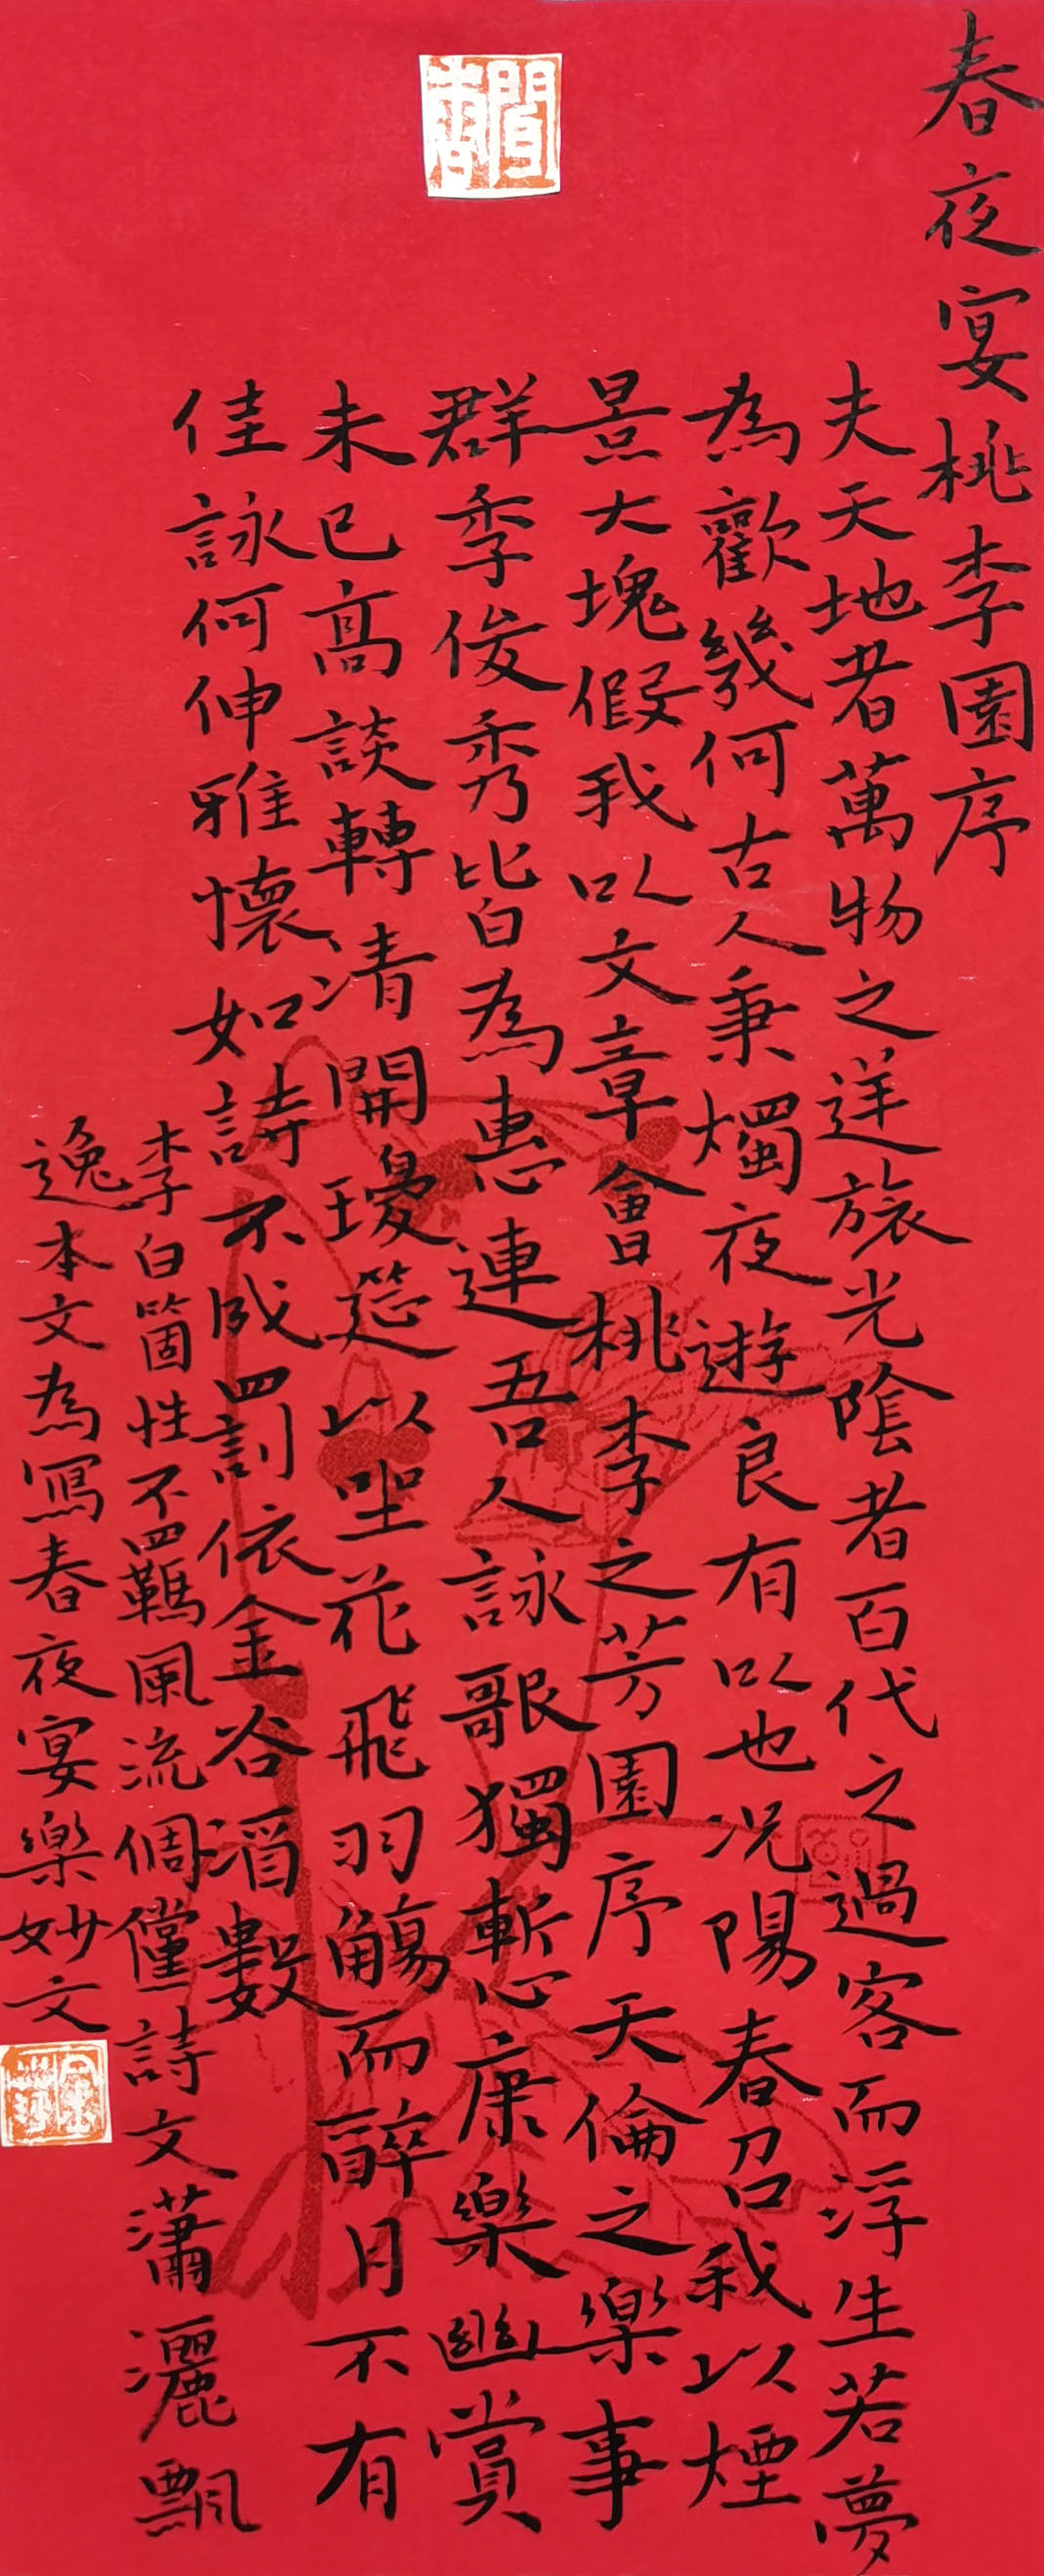 春夜宴桃李園序
夫天地者萬物之逆旅光陰者百代之過客而浮生若夢
為歡幾何古人秉燭夜遊良有以也況陽春召我以煙
景大塊假我以文章會桃李之芳園序天倫之樂事
群季俊秀皆為惠連吾人詠歌獨慙康樂幽賞
未已高談轉清開瓊筵以坐花飛羽觴而醉月不有
佳詠何伸雅懷如詩不成罰依金谷酒數
李白箇性不羈風流倜儻詩文瀟灑飄
逸本文為寫春夜宴樂妙文